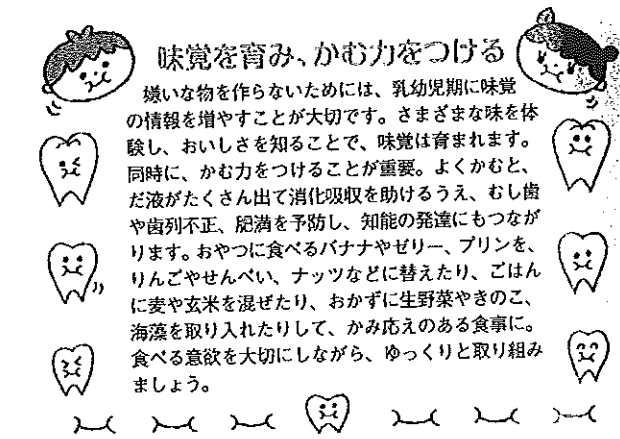 味覚を育み、かむ力をつける
嫌いな物を作らないためには、乳幼児期に味覚
の情報を増やすことが大切です。さまざまな味を体
験し、おいしさを知ることで、味覚は育まれます。
同時に、かむ力をつけることが重要。よくかむと、
だ液がたくさん出て消化吸収を助けるうえ、むし歯
や歯列不正、肥満を予防し、知能の発達にもつなが
ります。おやつに食べるバナナやゼリー、プリンを、
りんごやせんべい、ナッツなどに替えたり、ごはん
に麦や玄米を混ぜたり、おかずに生野菜やきのこ、
海藻を取り入れたりして、かみ応えのある食事に。
食べる意欲を大切にしながら、ゆっくりと取り組み
ましょう。